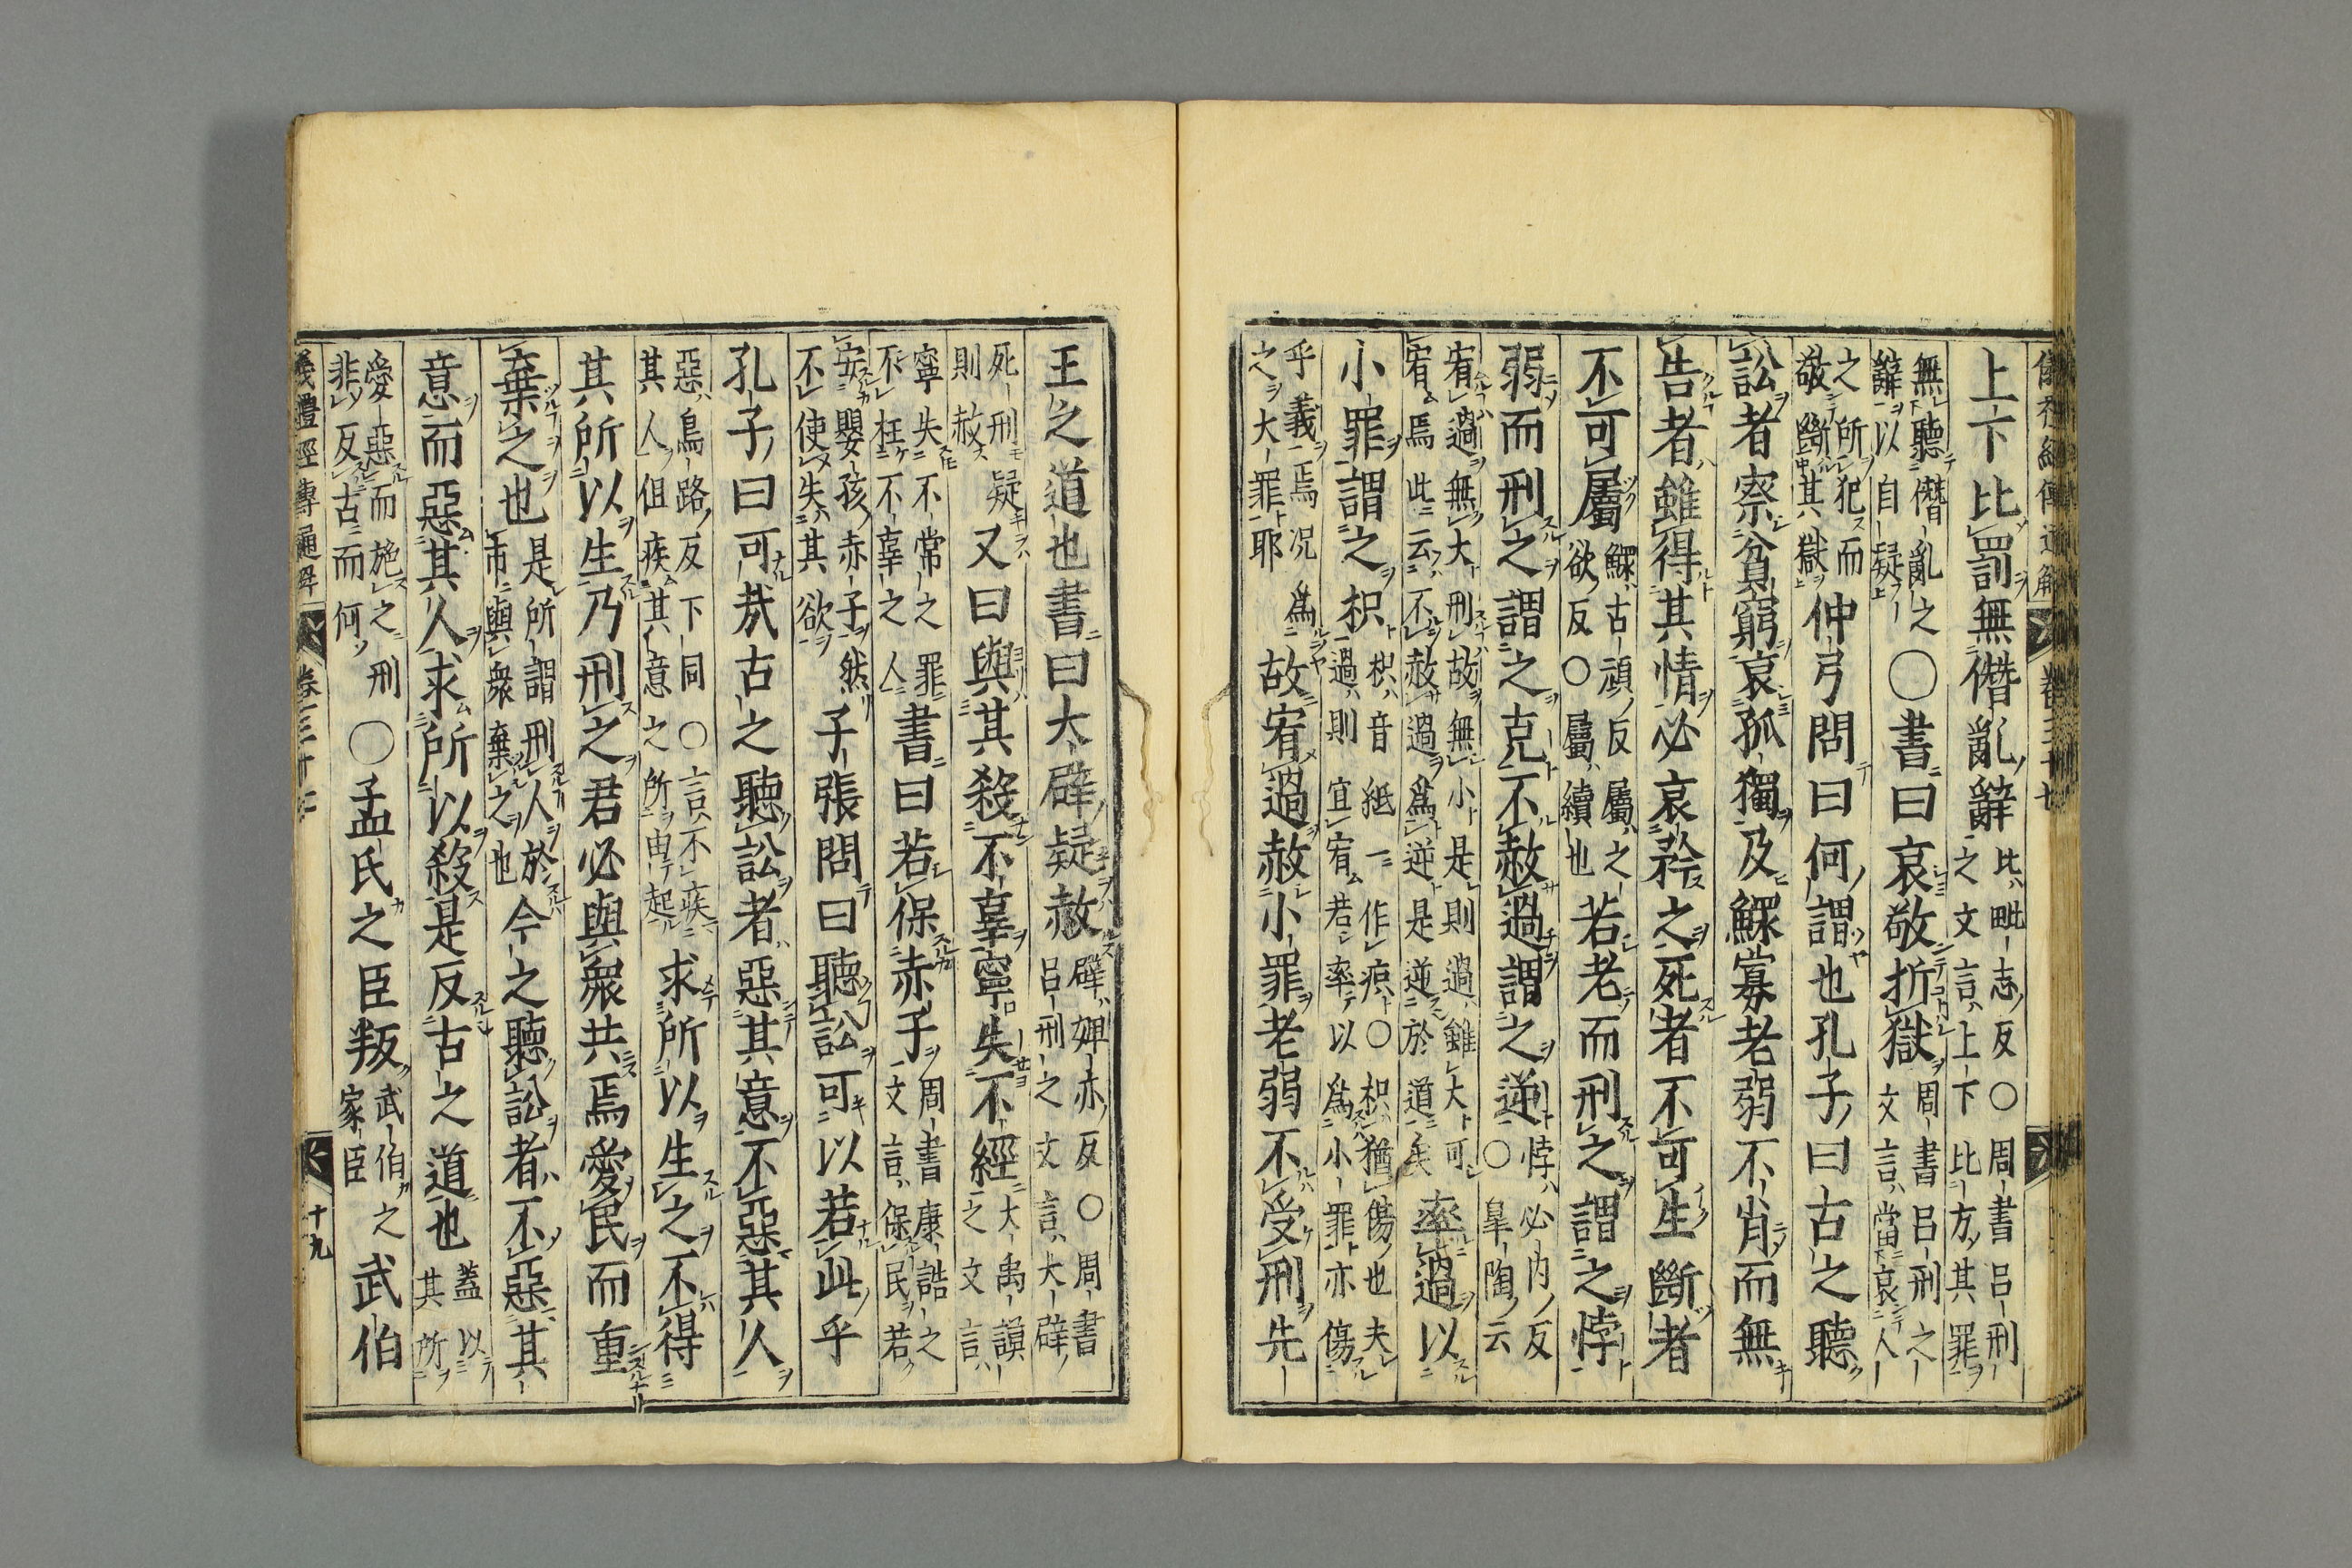 上下比罰無僭亂辭比毗志反○周書呂刑之文言上下比方其罪
無聽僭亂之辭以自疑○書曰哀敬折獄周書呂刑之文言當哀人
之所犯而敬斷其獄仲弓問曰何謂也孔子曰古之聽
訟者察貧窮哀孤獨及鰥寡老弱不肖而無
告者雖得其情必哀矜之死者不可生斷者
不可屬鰥古頑反屬之欲反○屬續也若老而刑之謂之悖
弱而刑之謂之克不赦過謂之逆悖必內反○皐陶云
宥過無大刑故無小是則過雖大可宥焉此云不赦過爲逆是逆於道矣率過以
小罪謂之枳枳音紙一作疻○枳猶傷也夫過則宜宥若率以爲小罪亦傷
乎義焉况爲之大罪耶故宥過赦小罪老弱不受刑先
王之道也書曰大辟疑赦辟婢亦反○周書呂刑之文言大辟
死刑疑則赦又曰與其殺不辜寧失不經大禹謨之文言
寧失不常之罪不枉不辜之人書曰若保赤子周書康誥之文言保民若
安嬰孩赤子然不使失其欲子張問曰聽訟可以若此乎
孔子曰可哉古之聽訟者惡其意不惡其人
惡烏路反下同○言不疾其人但疾其意之所由起求所以生之不得
其所以生乃刑之君必與衆共焉愛民而重
棄之也是所謂刑人於市與衆棄之也今之聽訟者不惡其
意而惡其人求所以殺是反古之道也蓋以其所
愛惡而施之刑非反古而何○孟氏之臣叛武伯之家臣武伯
儀禮經傳通解
卷三十七
十九